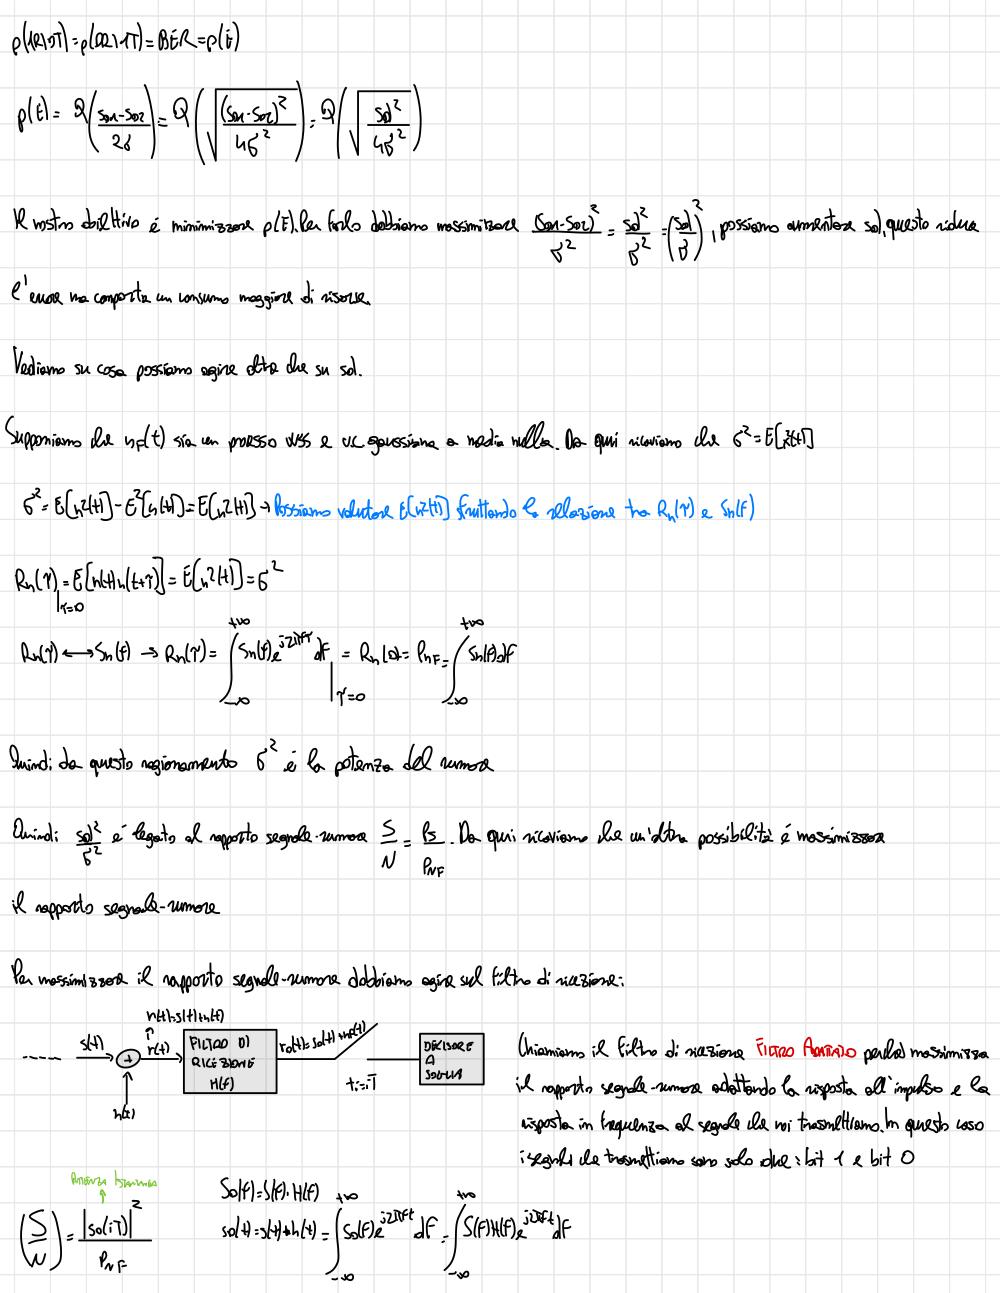 p(1R|0T)=p(0R|1T)=BER=p(E)
p(E)= Q((s01-s02)/2σ) = Q(√((s01-s02)²/4σ²)) = Q(√(sd²/4σ²))
Il nostro obiettivo è minimizzare p(E). Per farlo dobbiamo massimizzare (s01-s02)²/σ² = sd²/σ² = (sd/σ)², possiamo aumentare sd, questo riduce
l'errore ma comporta un consumo maggiore di risorse.
Vediamo su cosa possiamo agire oltre che su sd.
Supponiamo che nF(t) sia un processo WSS e vc gaussiana a media nulla. Da qui ricaviamo che σ²=E[n²(t)]
σ²=E[n²(t)]-E²[n(t)]=E[n²(t)] → Possiamo valutare E[n²(t)] sfruttando la relazione tra Rn(τ) e Sn(f)
Rn(τ)|τ=0 = E[n(t)n(t+τ)] = E[n²(t)] = σ²
Rn(τ) ↔ Sn(f) → Rn(τ) = ∫_{-∞}^{+∞} Sn(f)e^{j2πfτ}df |τ=0 = Rn(0) = PnF = ∫_{-∞}^{+∞} Sn(f)df
Quindi da questo ragionamento σ² è la potenza del rumore
Quindi sd²/σ² è legato al rapporto segnale-rumore S/N = Ps/PNF. Da qui ricaviamo che un'altra possibilità è massimizzare
il rapporto segnale-rumore
Per massimizzare il rapporto segnale-rumore dobbiamo agire sul filtro di ricezione:
r(t)=s(t)+n(t)
s(t)
+
r(t)
n(t)
FILTRO DI
RICEZIONE
H(f)
r0(t)=s0(t)+nF(t)
ti=iT
DECISORE
A
SOGLIA
Chiamiamo il filtro di ricezione FILTRO ADATTATO perché massimizza
il rapporto segnale-rumore adattando la risposta all'impulso e la
risposta in frequenza al segnale che noi trasmettiamo. In questo caso
i segnali che trasmettiamo sono solo due: bit 1 e bit 0
Potenza Istantanea
(S/N) = |s0(iT)|²/PNF
S0(f)=S(f)·H(f)
s0(t)=s(t)*h(t) = ∫_{-∞}^{+∞} S0(f)e^{j2πft}df = ∫_{-∞}^{+∞} S(f)H(f)e^{j2πft}df